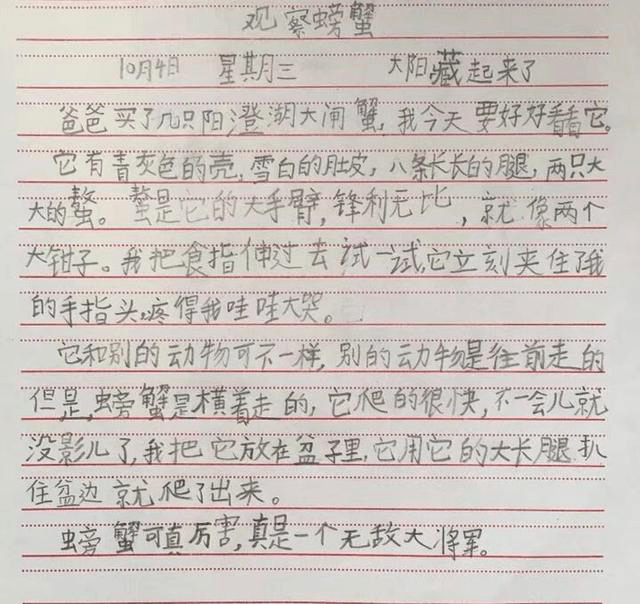 观察螃蟹
10月4日 星期三 大阳藏起来了
爸爸买了几只阳澄湖大闸蟹,我今天要好好看看它。
它有青灰色的壳,雪白的肚皮,八条长长的腿,两只大
大的螯。螯是它的大手臂,锋利无比,就像两个
大钳子。我把食指伸过去试一试,它立刻夹住了我
的手指头,疼得我哇哇大哭。
它和别的动物可不一样,别的动物是往前走的
但是,螃蟹是横着走的,它爬的很快,不一会儿就
没影儿了,我把它放在盆子里,它用它的大长腿扒
住盆边就爬了出来。
螃蟹可真厉害,真是一个无敌大将军。